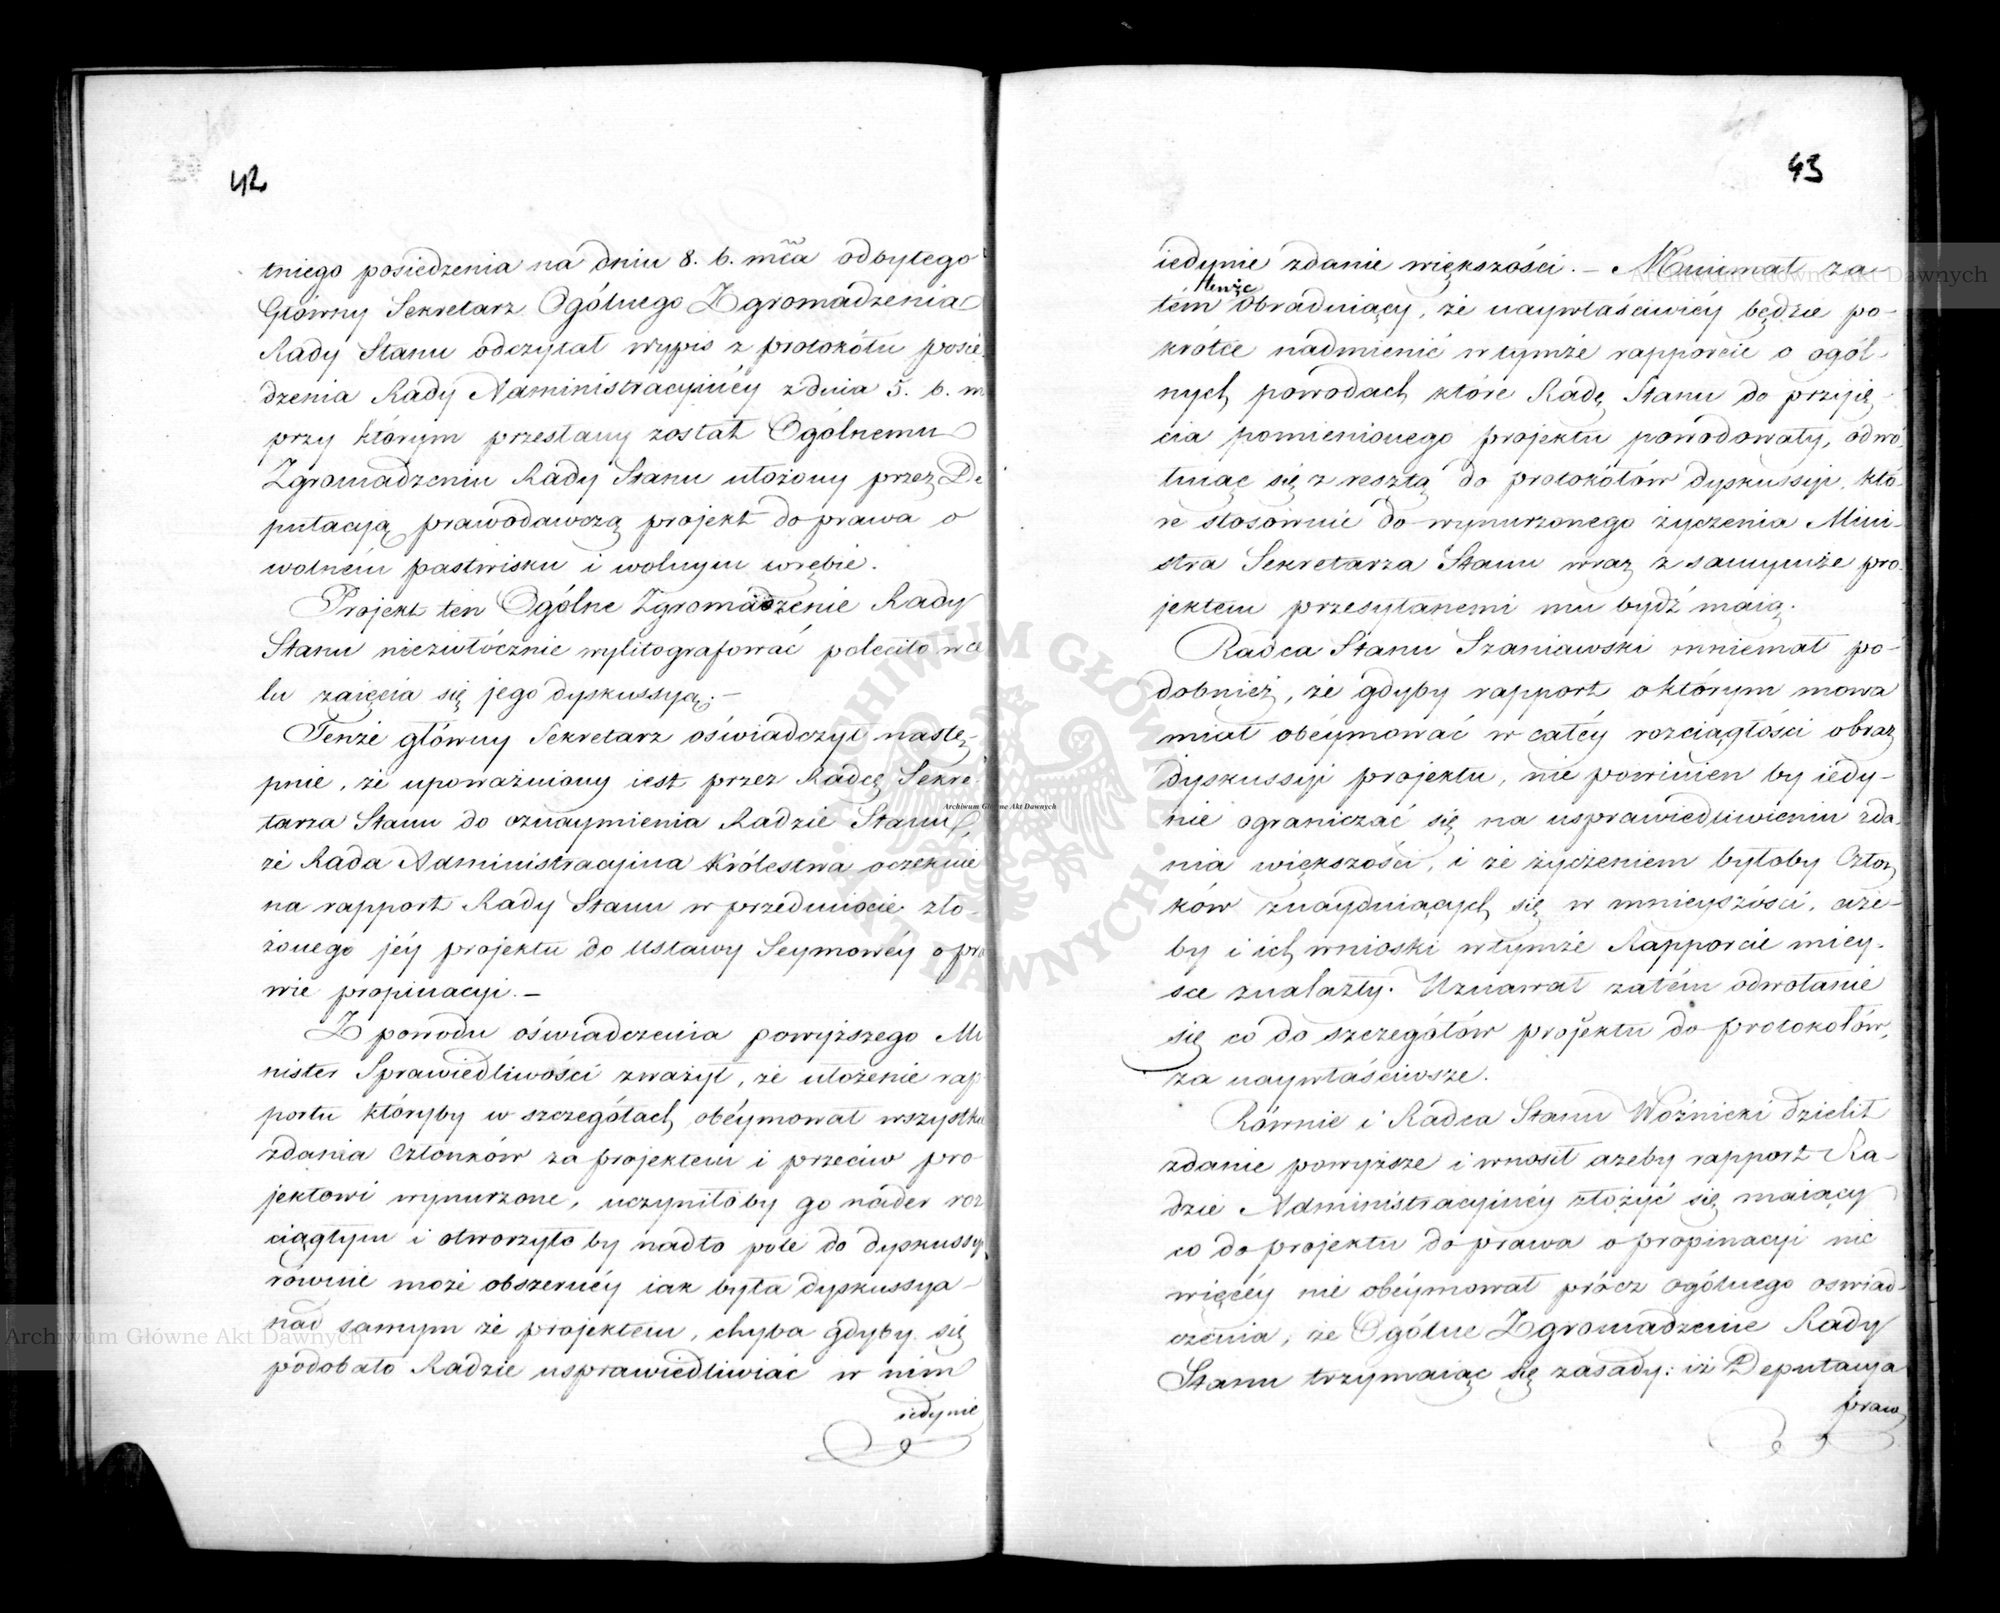 42
tniego posiedzenia na dniu 8. b. mca odbytego
Główny Sekretarz Ogólnego Zgromadzenia
Rady Stanu odczytał wypis z protokółu posie-
dzenia Rady Administracyjnéy z dnia 5. b. m
przy którym przesłany został Ogólnemu
Zgromadzeniu Rady Stanu ułożony przez De
putacją prawodawczą projekt do prawa o
wolném pastwisku i wolnym wrębie.
Projekt ten Ogólne Zgromadzenie Rady
Stanu niezwłócznie wylitografować poleciło w ce
lu zaięcia się jego dyskussyą. —
Tenże główny Sekretarz oświadczył nastę-
pnie, że upoważniony iest przez Radcę Sekre-
tarza Stanu do oznaymienia Radzie Stanu,
że Rada Administracyjna Królestwa oczekuie
na rapport Rady Stanu w przedmiocie zło-
żonego jéy projektu do Ustawy Seymowéy o pra
wie propinacyi. —
Z powodu oświadczenia powyższego Mi
nister Sprawiedliwości zważył, że ułożenie rap
portu któryby w szczegółach obéymował wszystkie
zdania Członków za projektem i przeciw pro
jektowi wynurzone, uczyniłoby go nader roz
ciągłym i otworzyłoby nadto pole do dyskussyi
równie może obszernéy iak była dyskussya
nad samym że projektem, chyba gdyby się
podobało Radzie usprawiedliwiać w nim
iedynie
43
iedynie zdanie większości. — Mniemał za
tém tenże Obraduiący, że naywłaściwiéy będzie po-
krótce nadmienić w tymże rapporcie o ogól-
nych powodach które Radę Stanu do przyię-
cia pomienionego projektu powodowały, odwo-
łuiąc się z resztą do protokółów dyskussyi, któ-
re stosownie do wynurzonego życzenia Mini-
stra Sekretarza Stanu wraz z samymże pro-
jektem przesyłanemi mu bydź maią.
Radca Stanu Szaniawski mniemał po-
dobnież, że gdyby rapport o którym mowa
miał obéymować w całéy rozciągłości obraz
dyskussyi projektu, nie powinien by iedy-
nie ograniczać się na usprawiedliwieniu zda-
nia większości, i że życzeniem byłoby Człon-
ków znayduiących się w mnieyszości, aże-
by i ich wnioski w tymże Rapporcie miey-
sce znalazły. Uznawał zatém odwołanie
się co do szczegółów projektu do protokołów,
za naywłaściwsze.
Równie i Radca Stanu Woźnicki dzielił
zdanie powyższe i wnosił ażeby rapport Ra-
dzie Administracyjnéy złożyć się maiący
co do projektu do prawa o propinacyi nic
więcéy nie obéymował prócz ogólnego oswiad-
czenia, że Ogólne Zgromadzenie Rady
Stanu trzymaiąc się zasady: iż Deputacya
praw
Archiwum Główne Akt Dawnych
Archiwum Główne Akt Dawnych
Archiwum Główne Akt Dawnych
ARCHIWUM GŁÓWNE AKT DAWNYCH